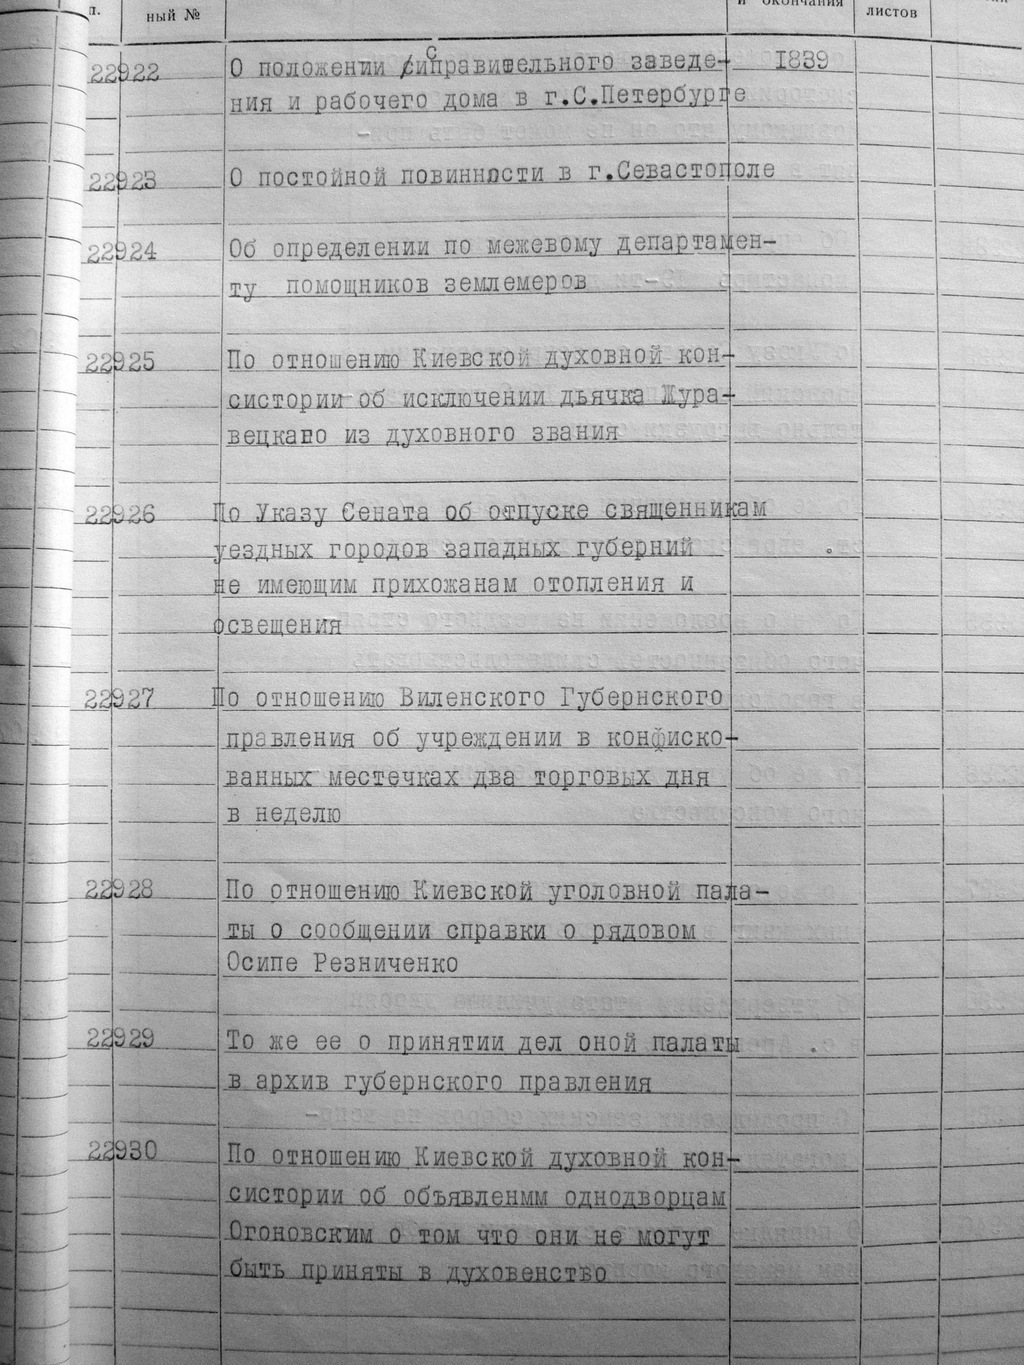 п.
ный №
и окончания
листов
22922 О положении исправительного заведе- 1839
ния и рабочего дома в г.С.Петербурге
22923 О постойной повинности в г.Севастополе
22924 Об определении по межевому департамен-
ту помощников землемеров
22925 По отношению Киевской духовной кон-
систории об исключении дьячка Жура-
вецкаго из духовного звания
22926 По Указу Сената об отпуске священникам
уездных городов западных губерний
не имеющим прихожанам отопления и
освещения
22927 По отношению Виленского Губернского
правления об учреждении в конфиско-
ванных местечках два торговых дня
в неделю
22928 По отношению Киевской уголовной пала-
ты о сообщении справки о рядовом
Осипе Резниченко
22929 То же ее о принятии дел оной палаты
в архив губернского правления
22930 По отношению Киевской духовной кон-
систории об объявленмм однодворцам
Огоновским о том что они не могут
быть приняты в духовенство